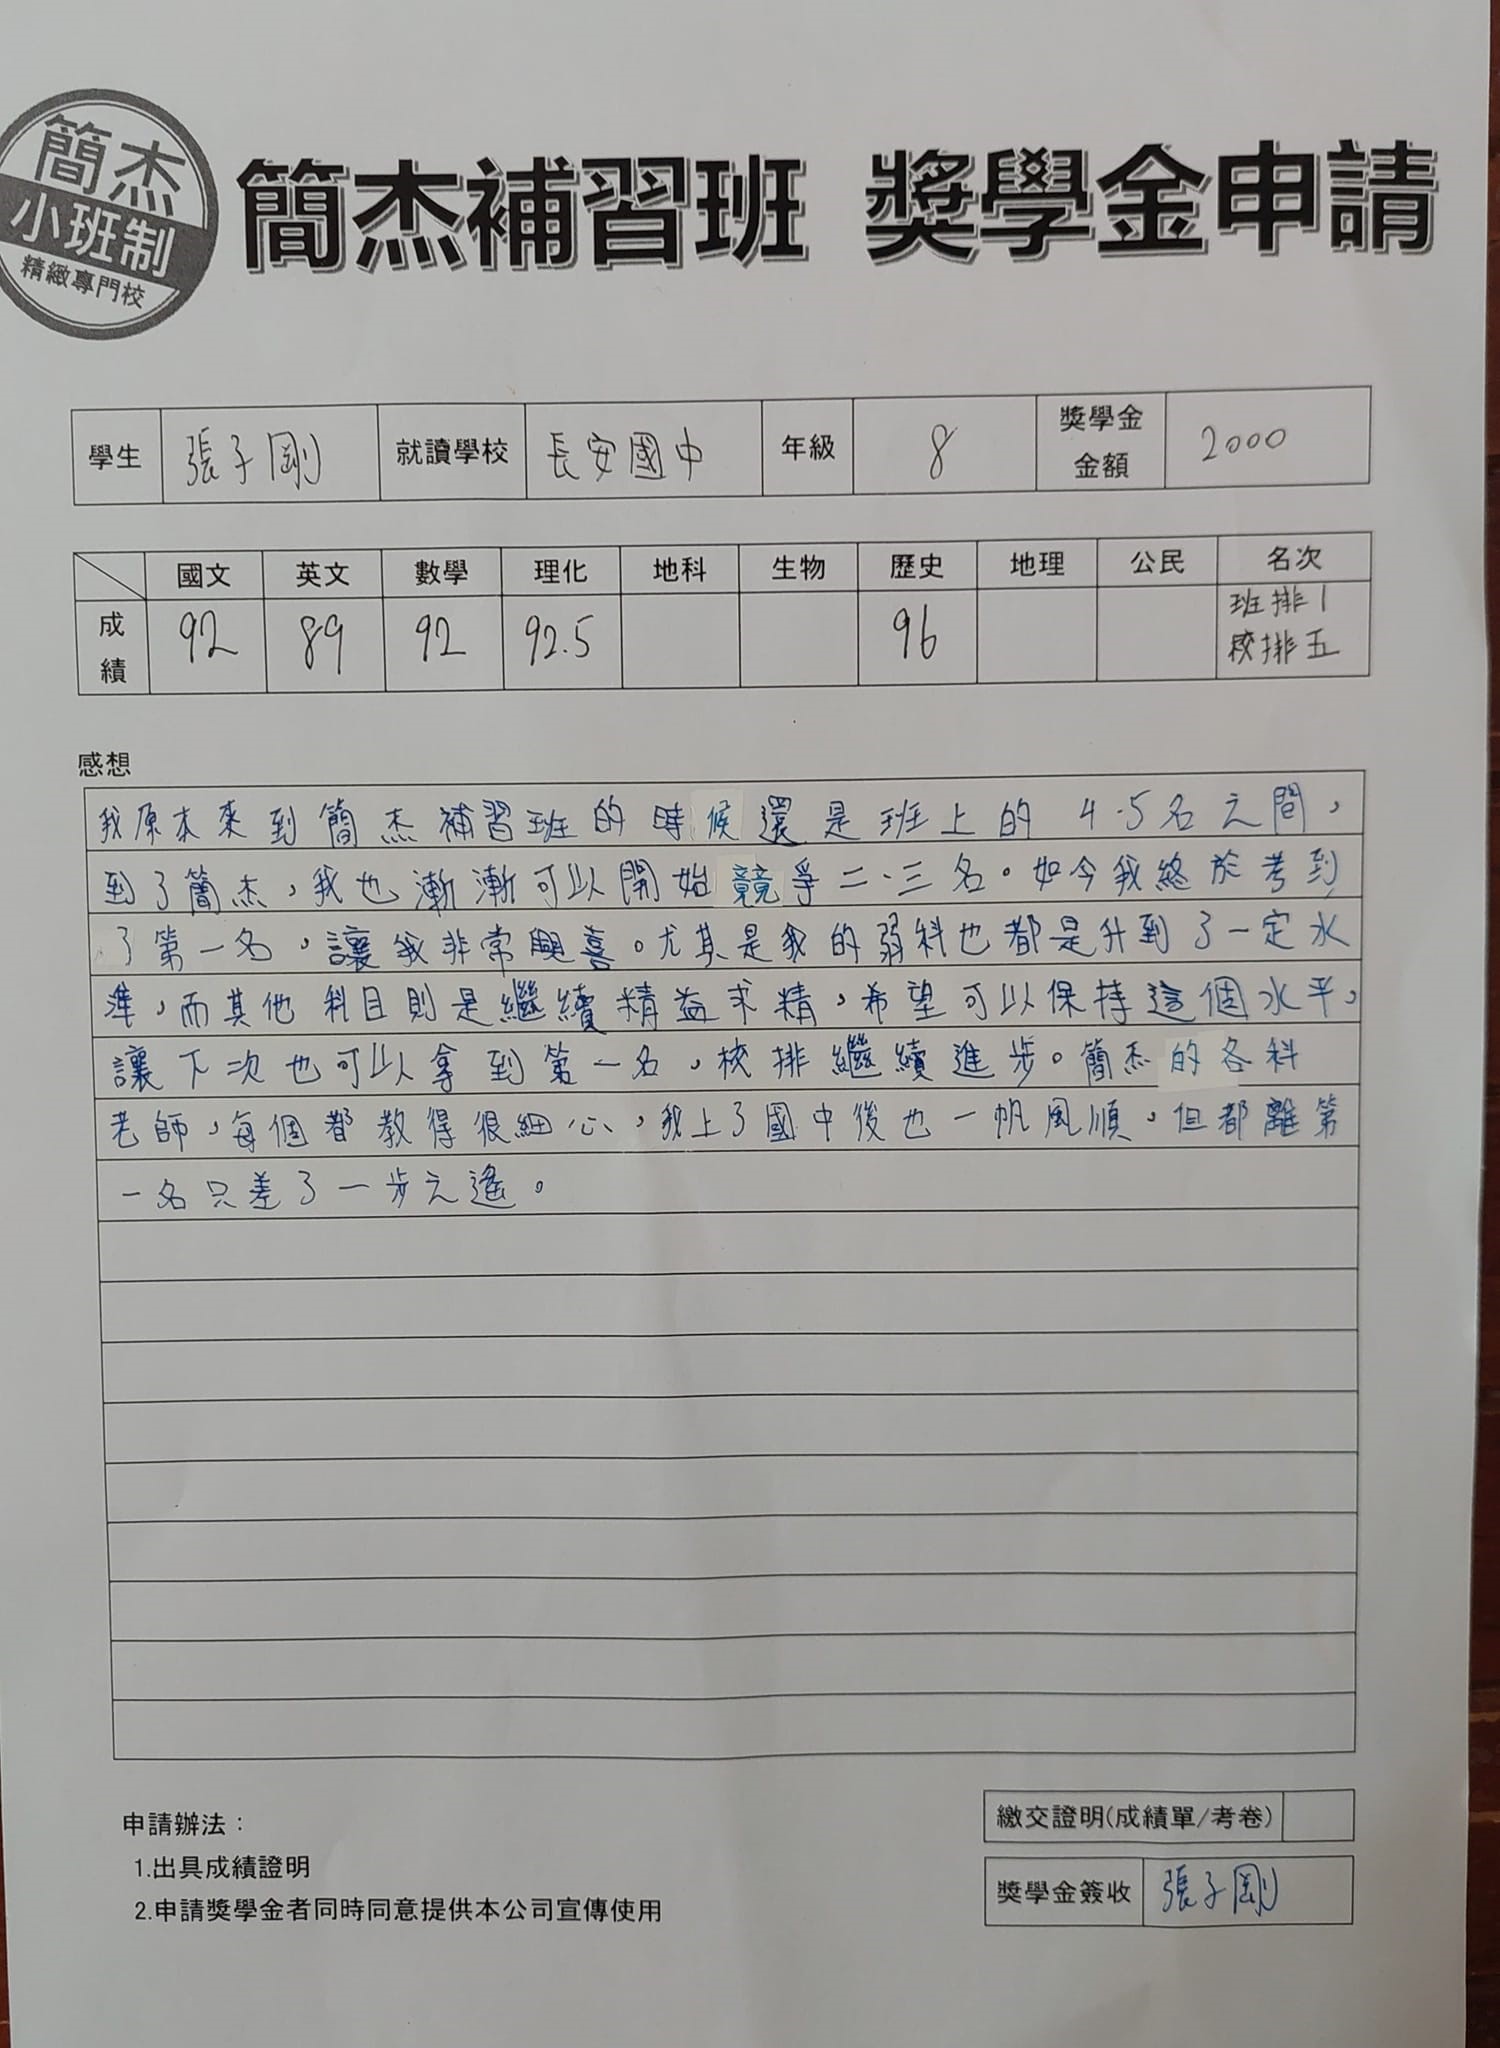 簡杰
小班制
精緻專門校
簡杰補習班 獎學金申請
學生 張子剛 就讀學校 長安國中 年級 8 獎學金金額 2000
國文 英文 數學 理化 地科 生物 歷史 地理 公民 名次
成績 92 89 92 92.5 96 班排1
校排五
感想
我原本來到簡杰補習班的時候還是班上的4.5名之間,
到了簡杰,我也漸漸可以開始競爭二.三名。如今我終於考到
了第一名,讓我非常興喜。尤其是我的弱科也都是升到了一定水
準,而其他科目則是繼續精益求精,希望可以保持這個水平,
讓下次也可以拿到第一名,校排繼續進步。簡杰的各科
老師,每個都教得很細心,我上了國中後也一帆風順,但都離第
一名只差了一步之遙。
申請辦法:
1.出具成績證明
2.申請獎學金者同時同意提供本公司宣傳使用
繳交證明(成績單/考卷)
獎學金簽收 張子剛